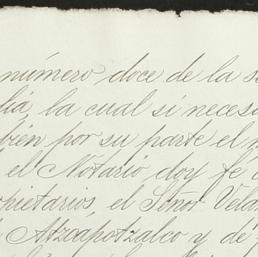 número doce de la s
lia, la cual si necesi
bien por su parte el
el Notario doy fé
pietarios, el Señor Vela
Atzcapotzalco y de